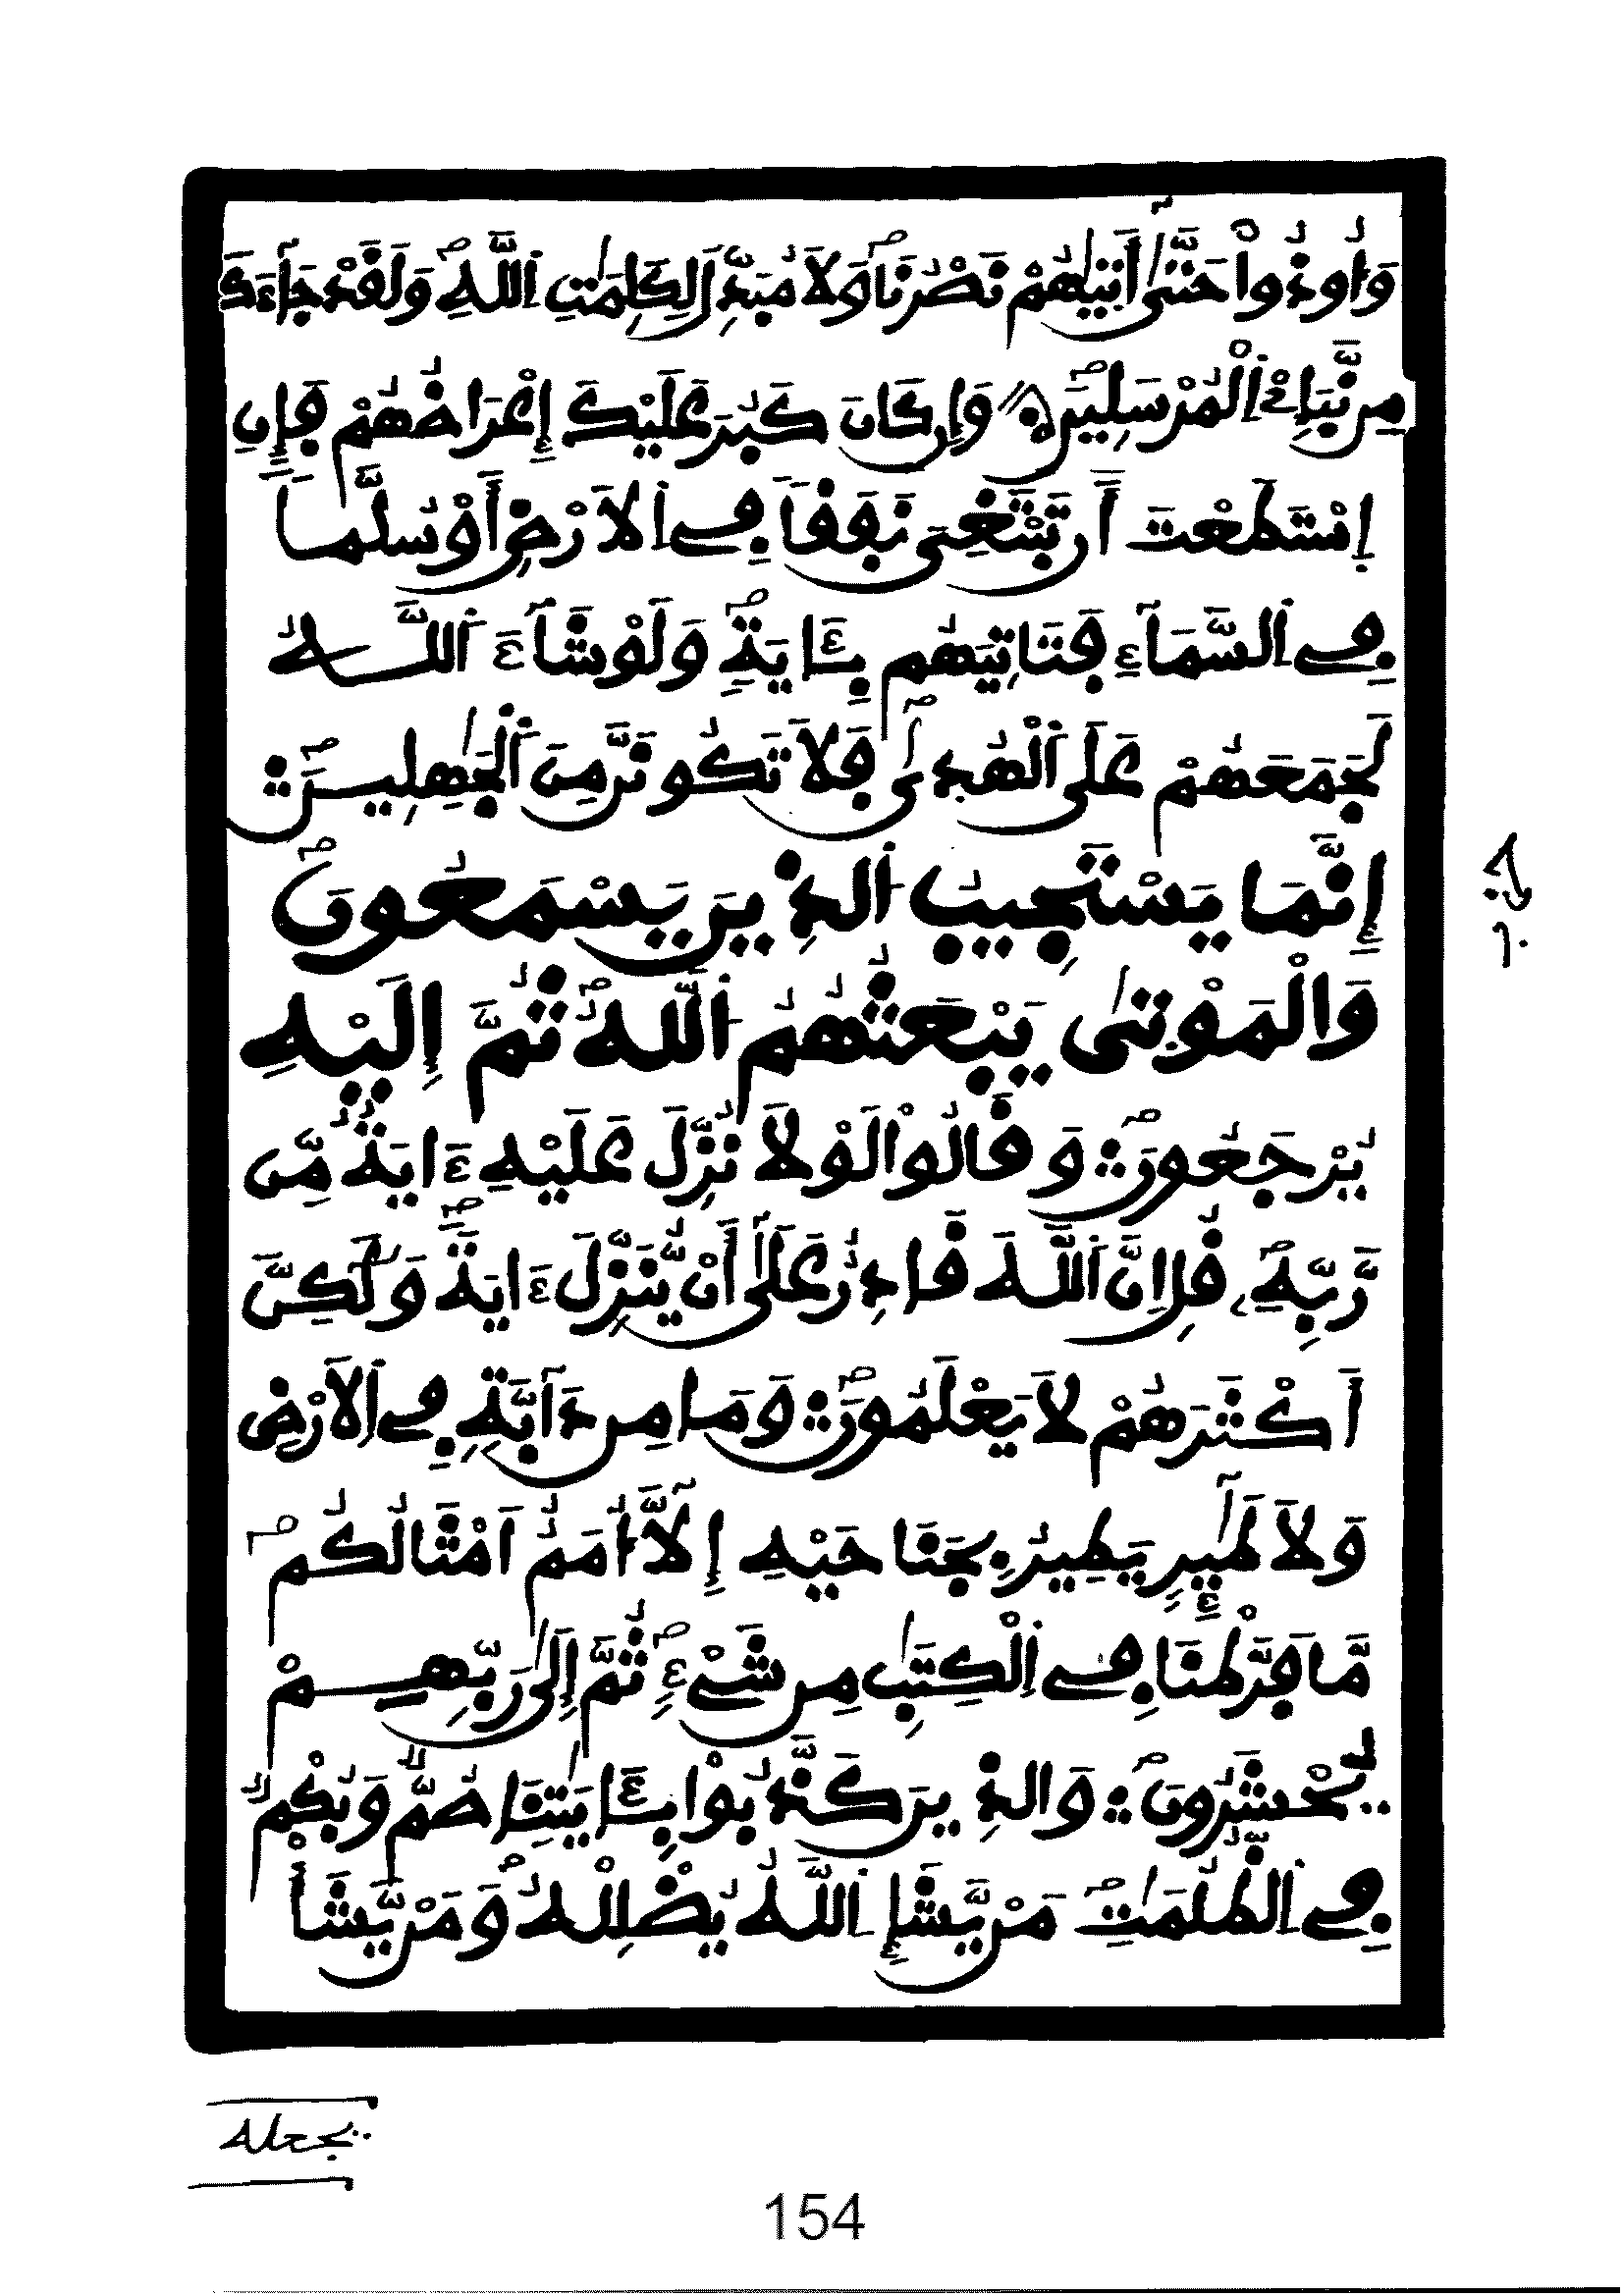 وَأُوذُواْ حَتَّىٰٓ أَتَيٰهُمْ نَصْرُنَا وَلَا مُبَدِّلَ لِكَلِمَٰتِ اِ۬للَّهِ وَلَقَدْ جَآءَكَ
مِن نَّبَإِےْ اِ۬لْمُرْسَلِينَ وَإِن كَانَ كَبُرَ عَلَيْكَ إِعْرَاضُهُمْ فَإِنِ
اِ۪سْتَطَعْتَ أَن تَبْتَغِيَ نَفَقاً فِے اِ۬لَارْضِ أَوْ سُلَّماً
فِے اِ۬لسَّمَآءِ فَتَاتِيَهُم بِـَٔايَةٍ وَلَوْ شَآءَ اَ۬للَّهُ
لَجَمَعَهُمْ عَلَى اَ۬لْهُدۭىٰ فَلَا تَكُونَنَّ مِنَ اَ۬لْجَٰهِلِينَ
إِنَّمَا يَسْتَجِيبُ اُ۬لذِينَ يَسْمَعُونَ
وَالْمَوْتۭىٰ يَبْعَثُهُمُ اُ۬للَّهُ ثُمَّ إِلَيْهِ
يُرْجَعُونَ وَقَالُواْ لَوْلَا نُزِّلَ عَلَيْهِ ءَايَةٌ مِّن
رَّبِّهِۦ قُلِ اِنَّ اَ۬للَّهَ قَادِرٌ عَلَىٰٓ أَنْ يُّنَزِّلَ ءَايَةً وَلَٰكِنَّ
أَكْثَرَهُمْ لَا يَعْلَمُونَ وَمَا مِن دَآبَّةٍ فِے اِ۬لَارْضِ
وَلَا طَٰٓئِرٍ يَطِيرُ بِجَنَاحَيْهِ إِلَّآ أُمَمٌ اَمْثَالُكُم
مَّا فَرَّطْنَا فِے اِ۬لْكِتَٰبِ مِن شَےْءٍ ثُمَّ إِلَىٰ رَبِّهِمْ
يُحْشَرُونَ وَالذِينَ كَذَّبُواْ بِـَٔايَٰتِنَا صُمٌّ وَبُكْمٌ
فِے اِ۬لظُّلُمَٰتِ مَنْ يَّشَإِ اِ۬للَّهُ يُضْلِلْهُ وَمَنْ يَّشَأْ
يجعله
154